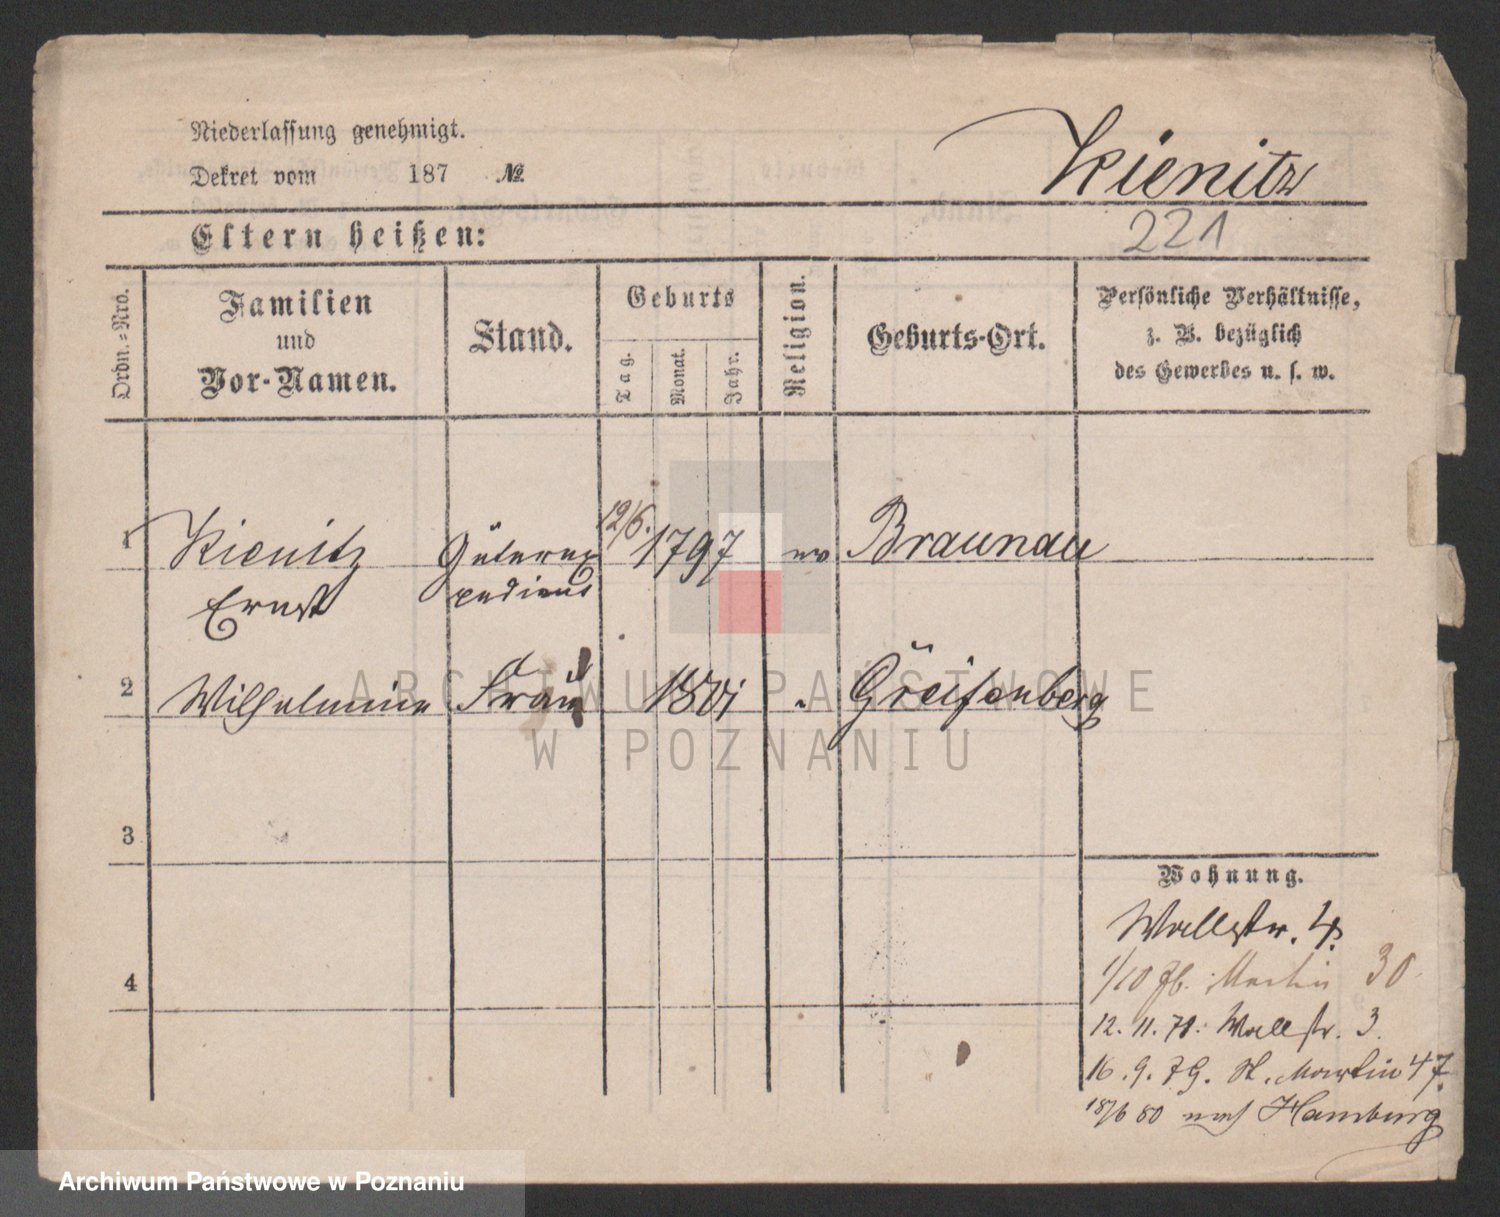 Niederlassung genehmigt.
Dekret vom 187 №
Kienitz
221
Eltern heißen:
Ordn.-Nro.
Familien
und
Vor-Namen.
Stand.
Geburts
Tag.
Monat.
Jahr.
Religion.
Geburts-Ort.
Persönliche Verhältnisse,
z. B. bezüglich
des Gewerbes u. s. w.
1 Kienitz Güterex 12/6. 1797 ev Braunau
Ernst pedient
2 Wilhelmine Frau " Greifenberg
3
4
Wohnung.
Wallstr. 4.
1/10 Martin 30
12. 11. Wallstr. 3.
16. 9. 79. St. Martin 47.
18/6 80 nach Hamburg
ARCHIWUM PAŃSTWOWE
W POZNANIU
Archiwum Państwowe w Poznaniu